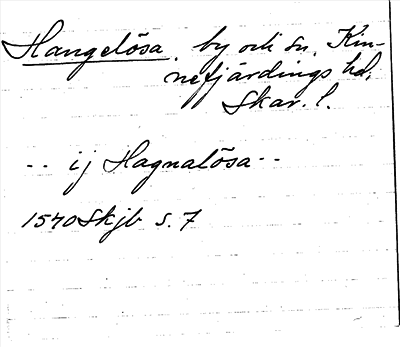 Hangelösa, by och sn, Kin-
nefjärdings hd,
Skar. l.
-- ij Hagnalösa --
1540 Skjb s. 7